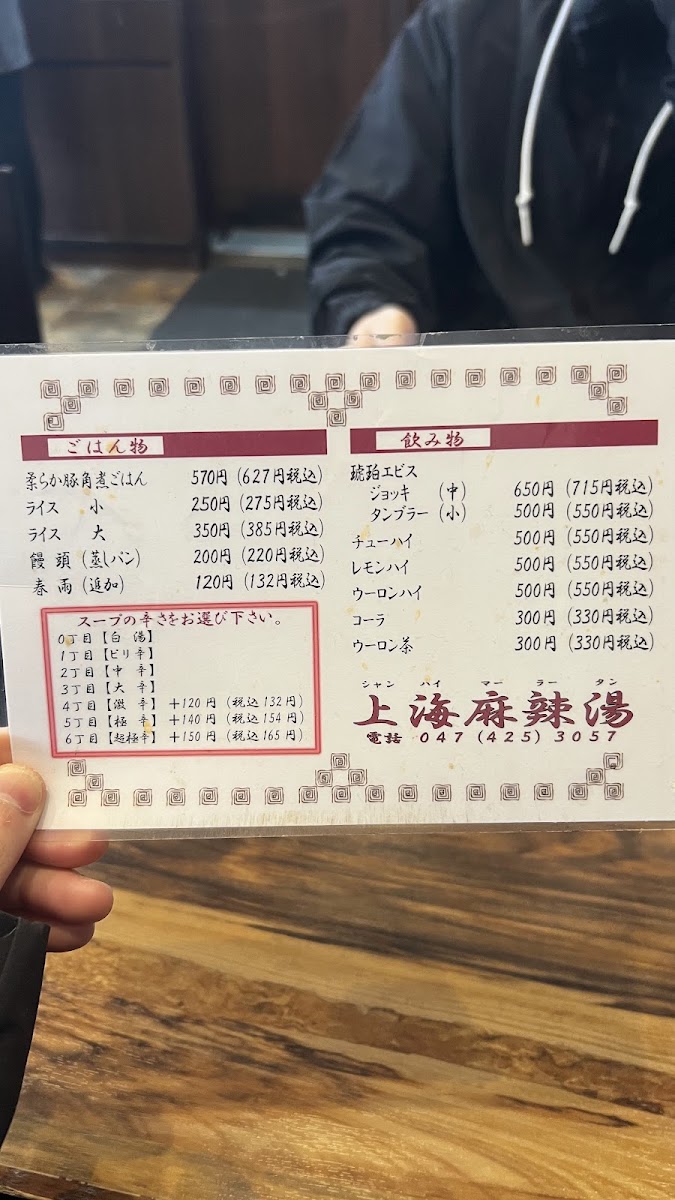 ごはん物
柔らか豚角煮ごはん 570円(627円税込)
ライス 小 250円(275円税込)
ライス 大 350円(385円税込)
饅頭(蒸しパン) 200円(220円税込)
春雨(追加) 120円(132円税込)
スープの辛さをお選び下さい。
0丁目【白 湯】
1丁目【ピリ辛】
2丁目【中 辛】
3丁目【大 辛】
4丁目【激 辛】 +120円(税込132円)
5丁目【極 辛】 +140円(税込154円)
6丁目【超極辛】 +150円(税込165円)
飲み物
琥珀エビス
ジョッキ (中) 650円(715円税込)
タンブラー(小) 500円(550円税込)
チューハイ 500円(550円税込)
レモンハイ 500円(550円税込)
ウーロンハイ 500円(550円税込)
コーラ 300円(330円税込)
ウーロン茶 300円(330円税込)
シャン ハイ マー ラー タン
上海麻辣湯
電話 047(425)3057